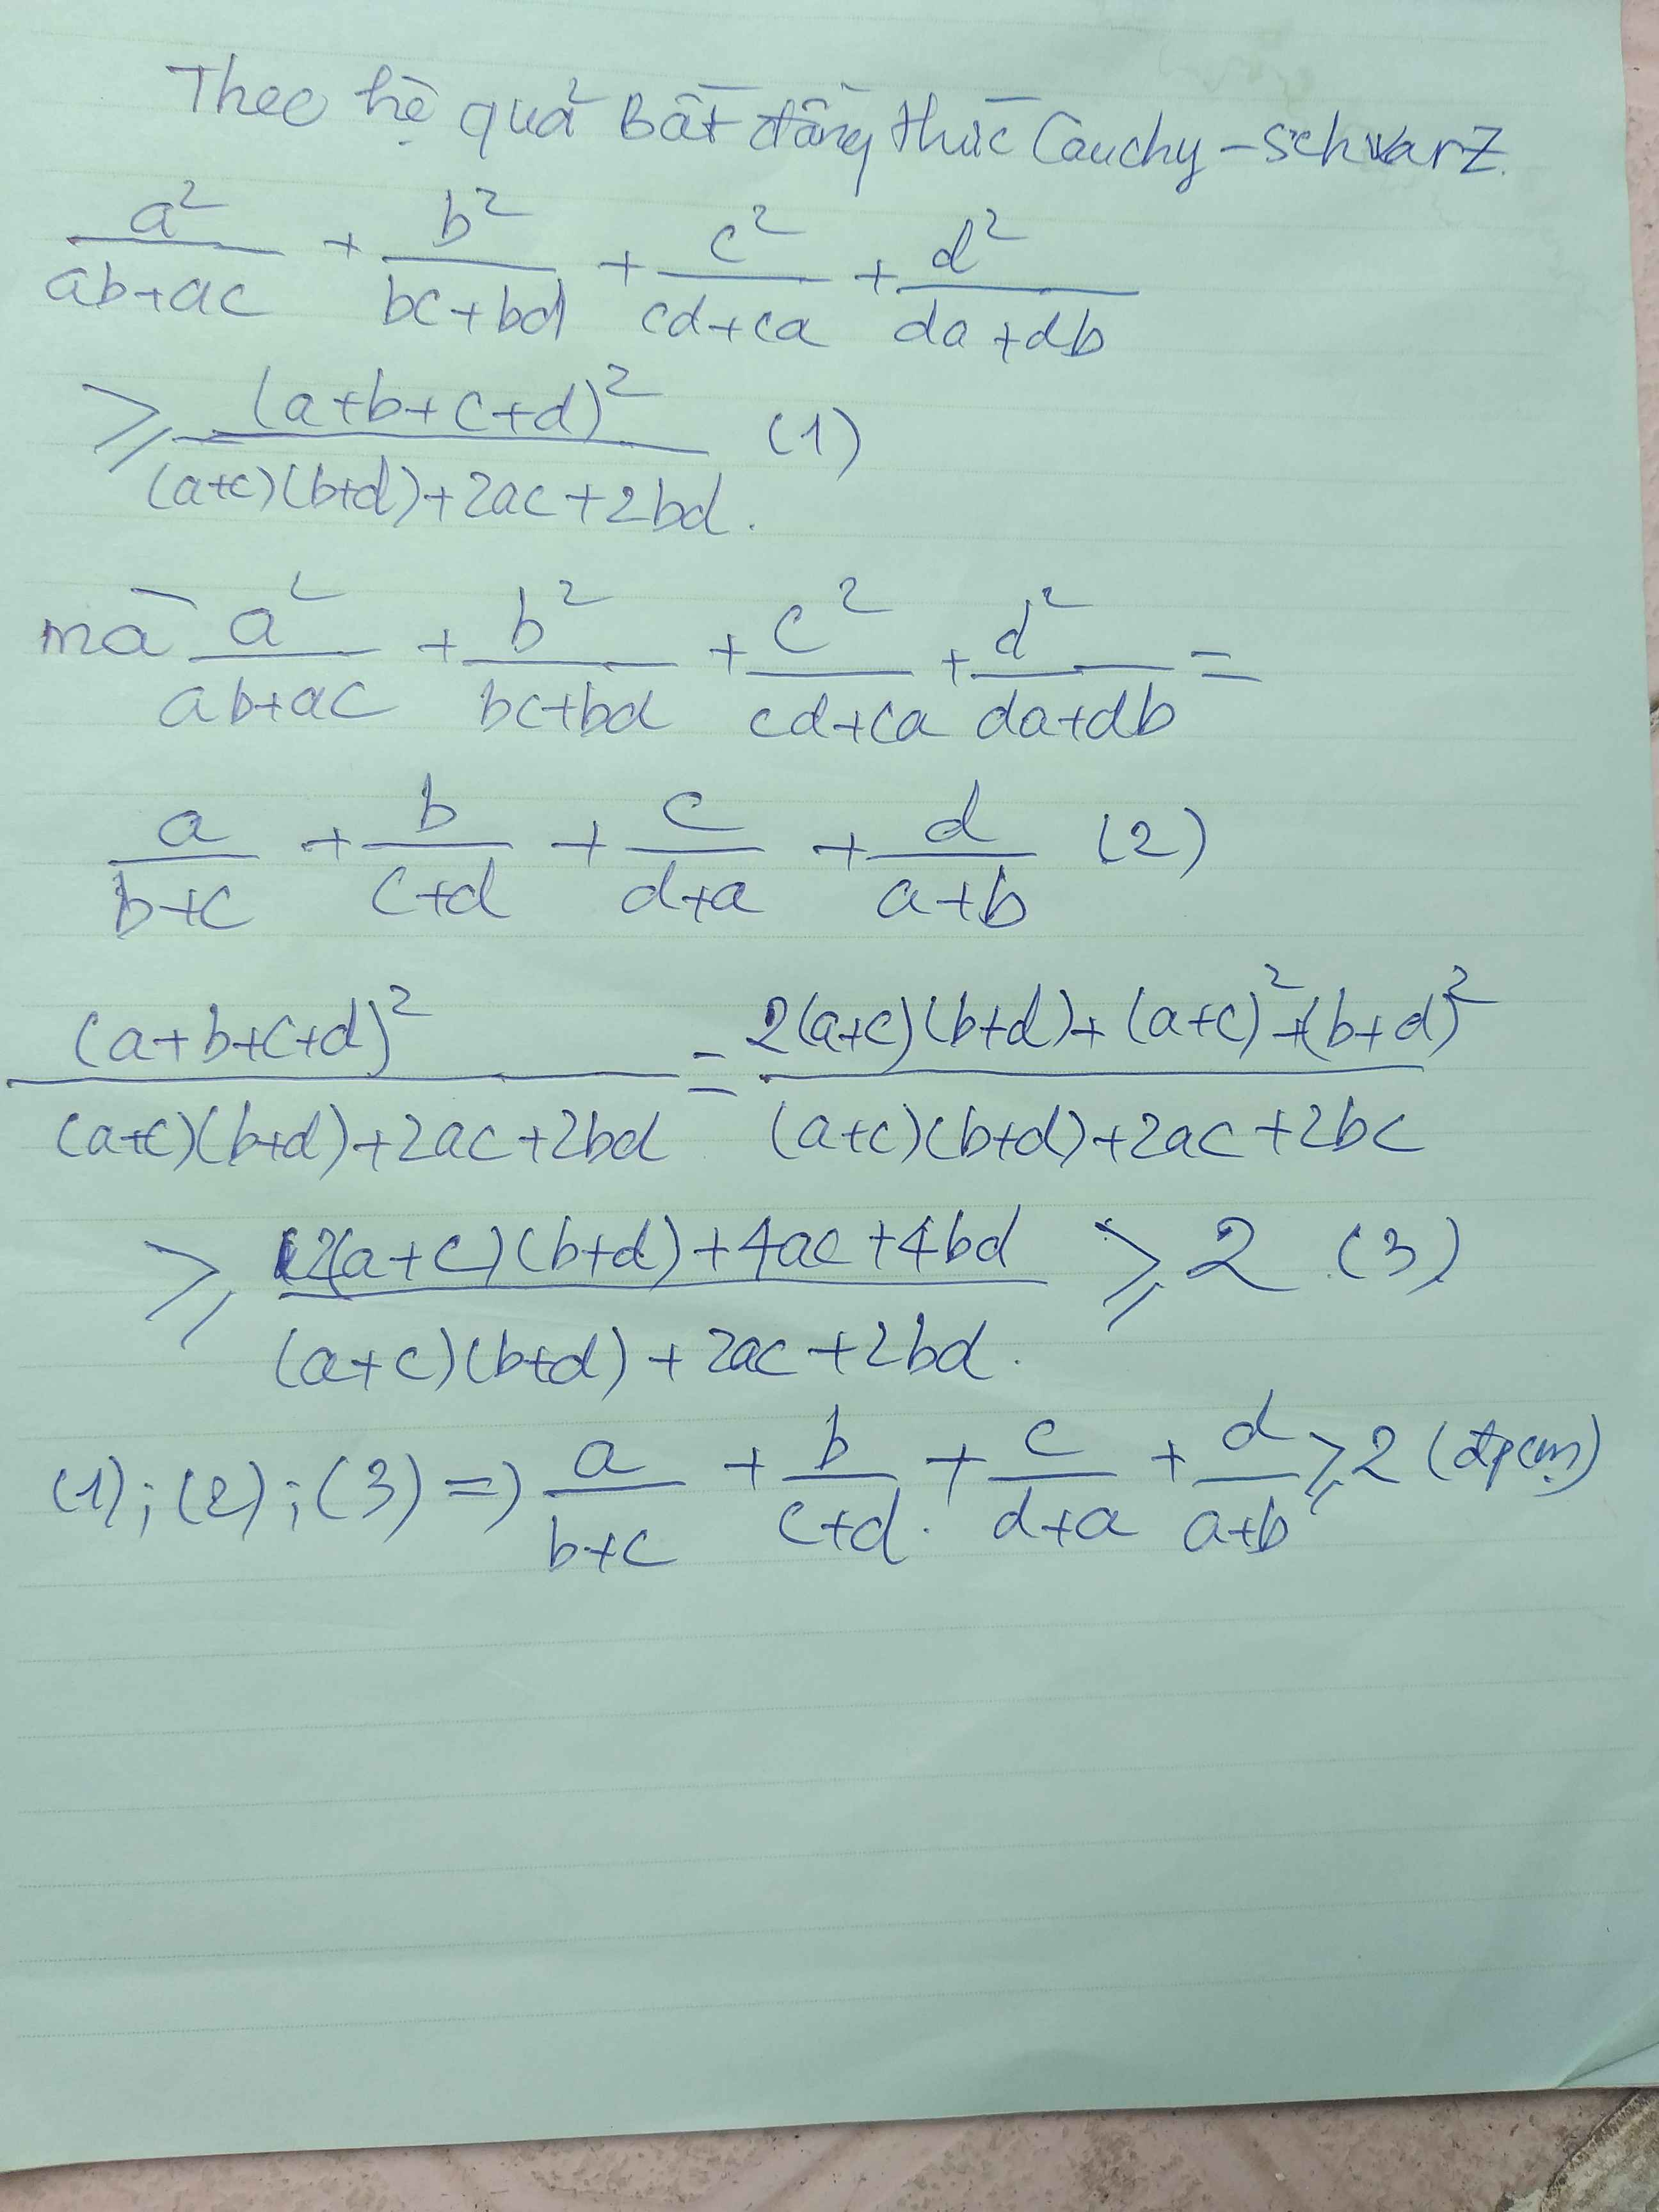 Theo hệ quả Bất đẳng thức Cauchy - Schwarz.
a²/(ab+ac) + b²/(bc+bd) + c²/(cd+ca) + d²/(da+db)
⩾ (a+b+c+d)²/((a+c)(b+d)+2ac+2bd). (1)
mà a²/(ab+ac) + b²/(bc+bd) + c²/(cd+ca) + d²/(da+db) =
a/(b+c) + b/(c+d) + c/(d+a) + d/(a+b) (2)
(a+b+c+d)²/((a+c)(b+d)+2ac+2bd) = (2(a+c)(b+d)+(a+c)²+(b+d)²)/((a+c)(b+d)+2ac+2bc)
⩾ (2(a+c)(b+d)+4ac+4bd)/((a+c)(b+d)+2ac+2bd). ⩾ 2 (3)
(1);(2);(3) => a/(b+c) + b/(c+d) + c/(d+a) + d/(a+b) ⩾ 2 (đpcm)